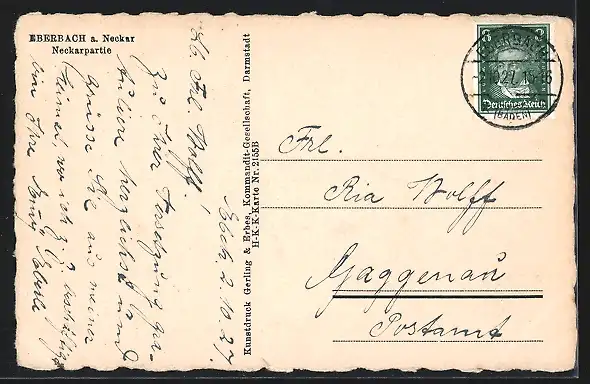 EBERBACH a. Neckar
Neckarpartie
Ebch, 2. 10. 27.
Lb. Frl. Wolff!
Zu Ihrer
herzlichst und
grüsse Sie aus meiner
Heimat, wo ich z. Z.
bin Ihre
Kunstdruck Gerling & Erbes, Kommandit-Gesellschaft, Darmstadt
H-K-K-Karte Nr. 2155B
3 3
Deutsches Reich
EBERBACH
(BADEN)
Frl.
Ria Wolff
Gaggenau
Postamt